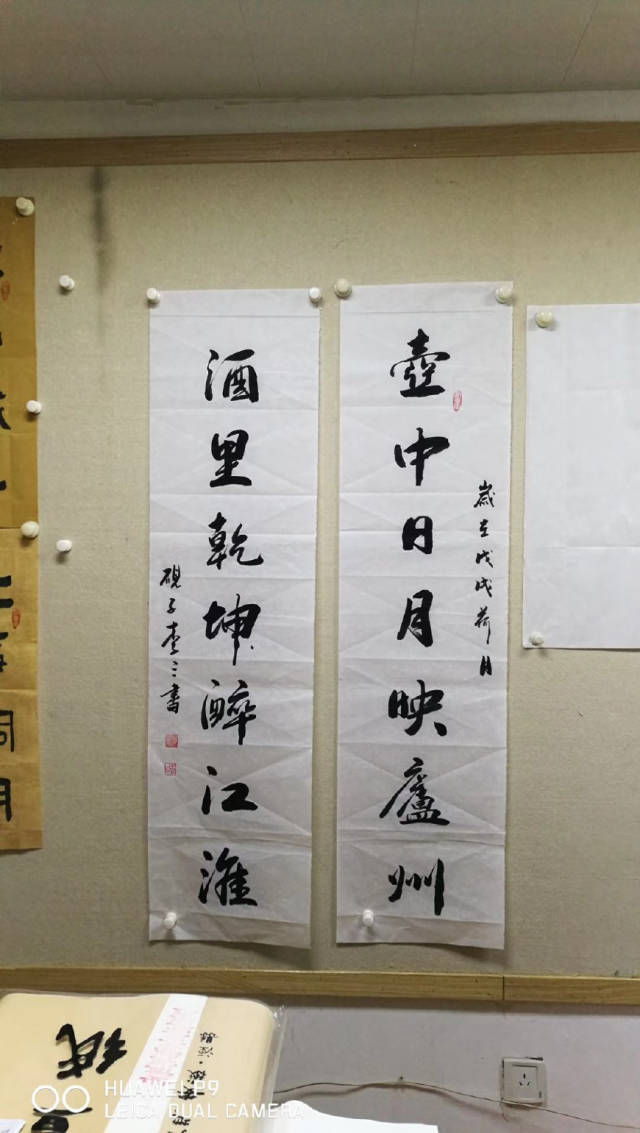 壺中日月映廬州
歲在戊戌荷月
酒里乾坤醉江淮
硯子李三書
HUAWEI P9
LEICA DUAL CAMERA